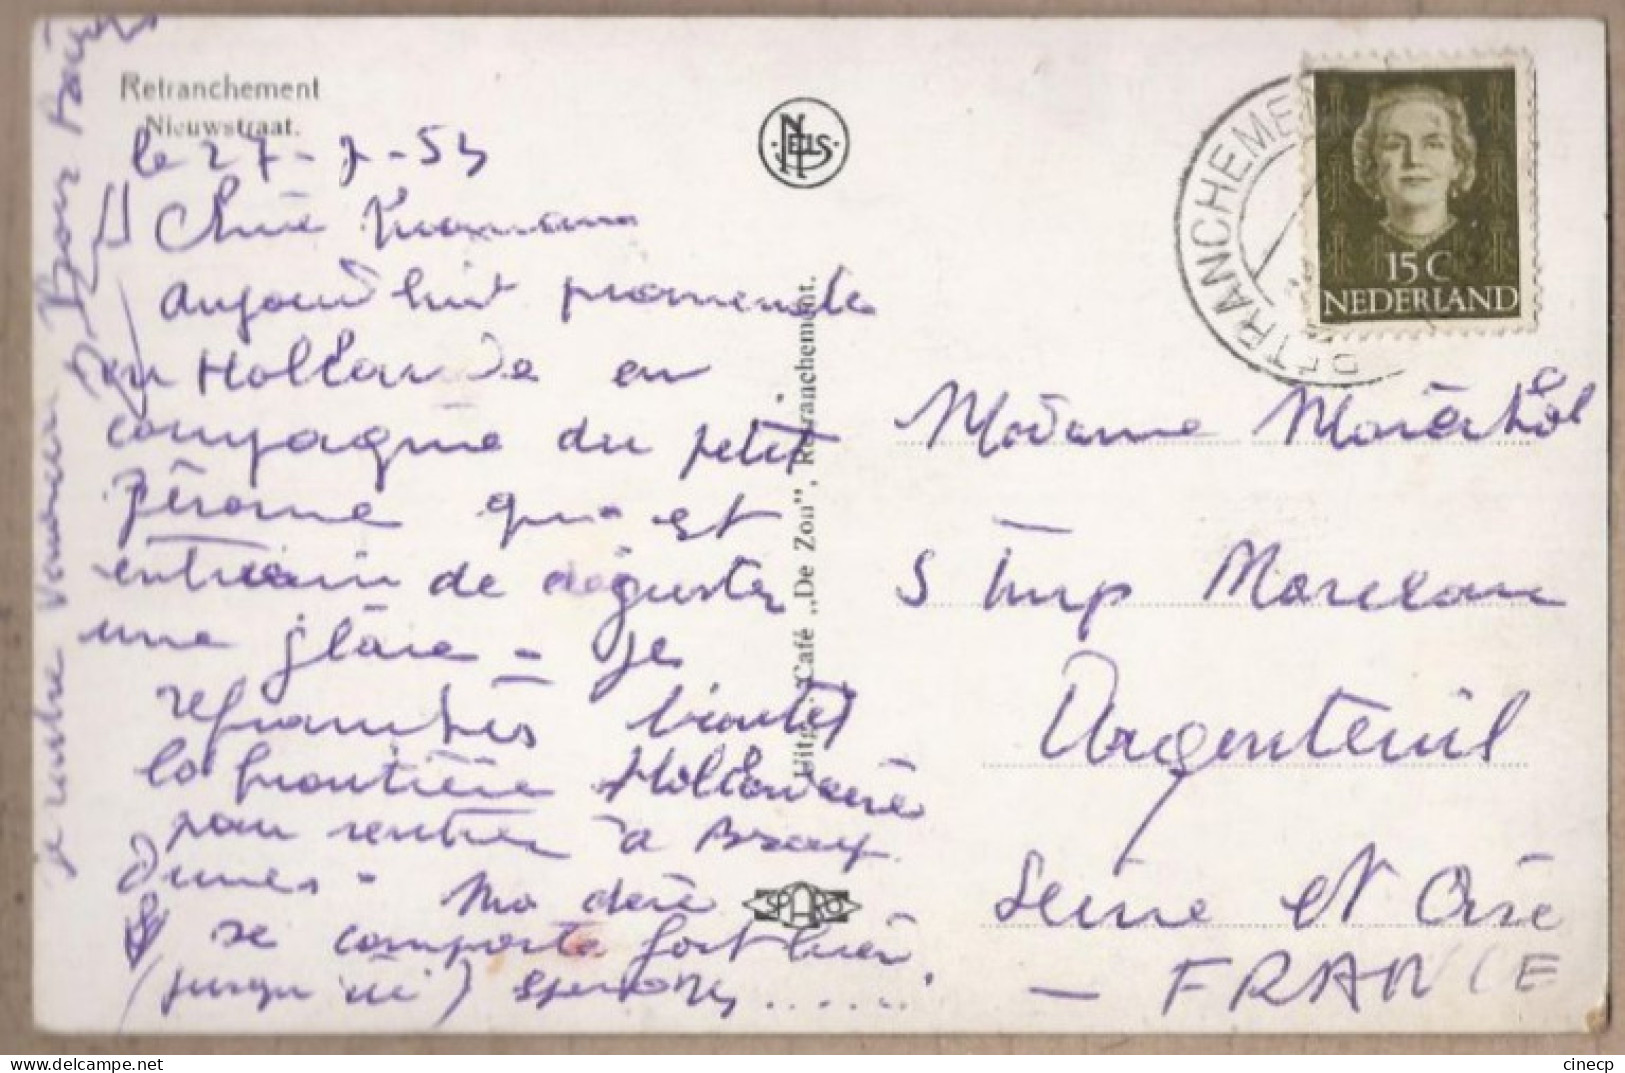 Retranchement
Nieuwstraat.
le 27-7-54
Chère Maman
aujourd'hui promenade
en Hollande en
compagnie du petit
Jérome qui est
entrain de déguster
une glâce - Je
refranchis bientôt
la frontière Hollandaise
pour rentrer à Bray
Dunes - Ma chère
se comporte fort bien
(jusqu'ici) espérons......
je rentre
Bons Baisers
NELS
Uitg. Café „De Zon", Retranchement.
SPHARO
RETRANCHEMENT
15 C
NEDERLAND
Madame Maréchal
5 Imp Marceau
Argenteuil
Seine et Oise
- FRANCE
https://www.delcampe.net
cinecp